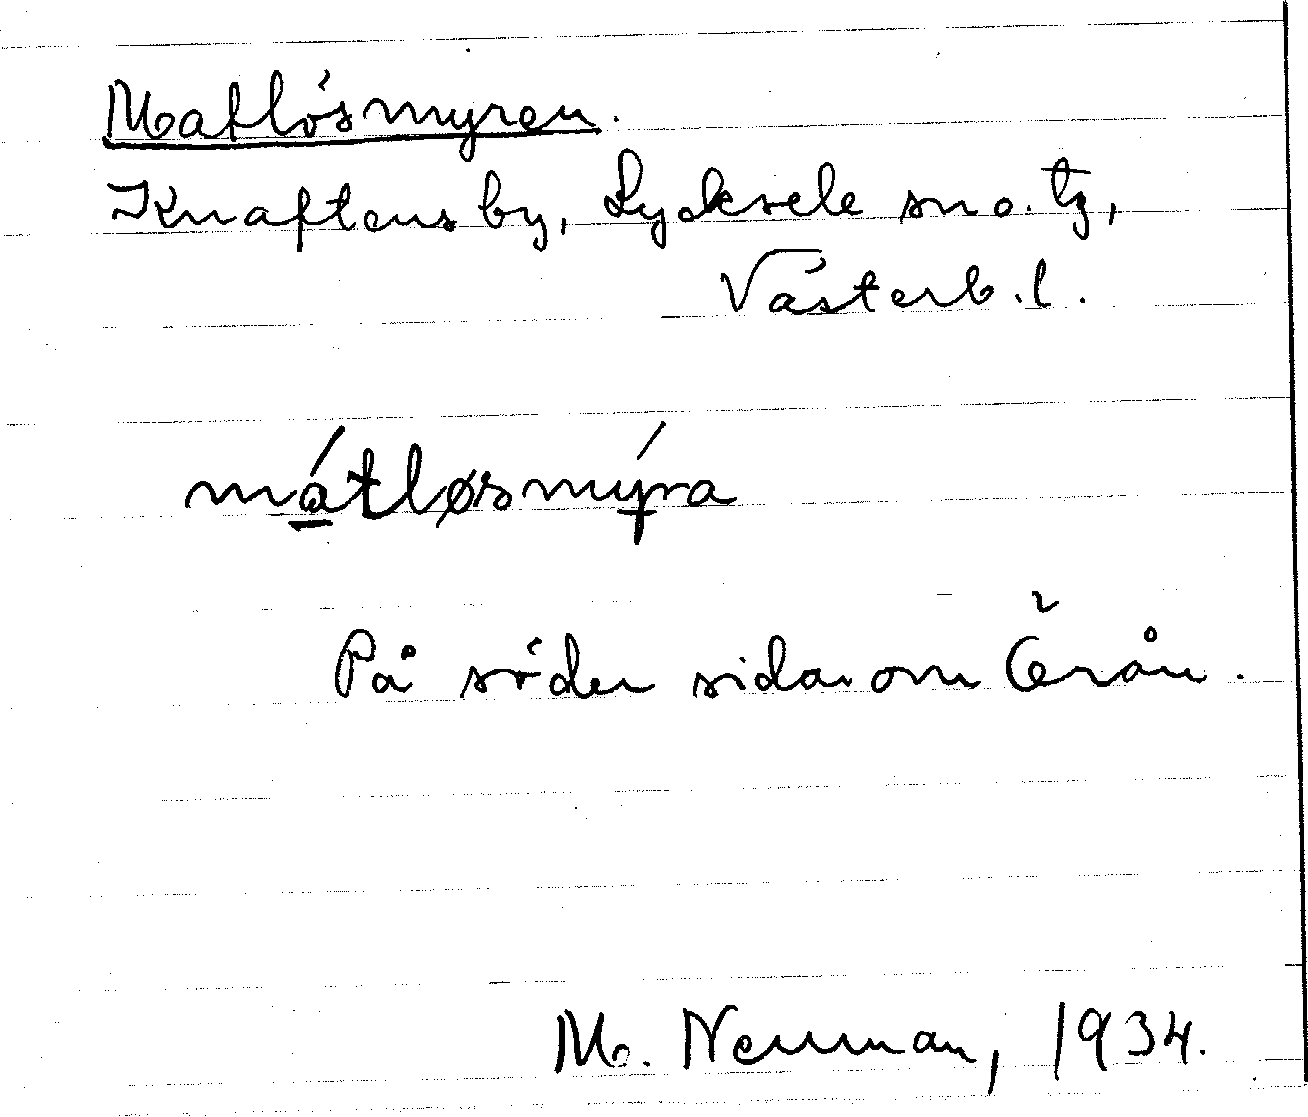 Matlösmyren.
Knaftens by, Lycksele sn o. tg,
Västerb. l.
mátløsmýra
På söder sidan om Örån.
M. Neuman, 1934.